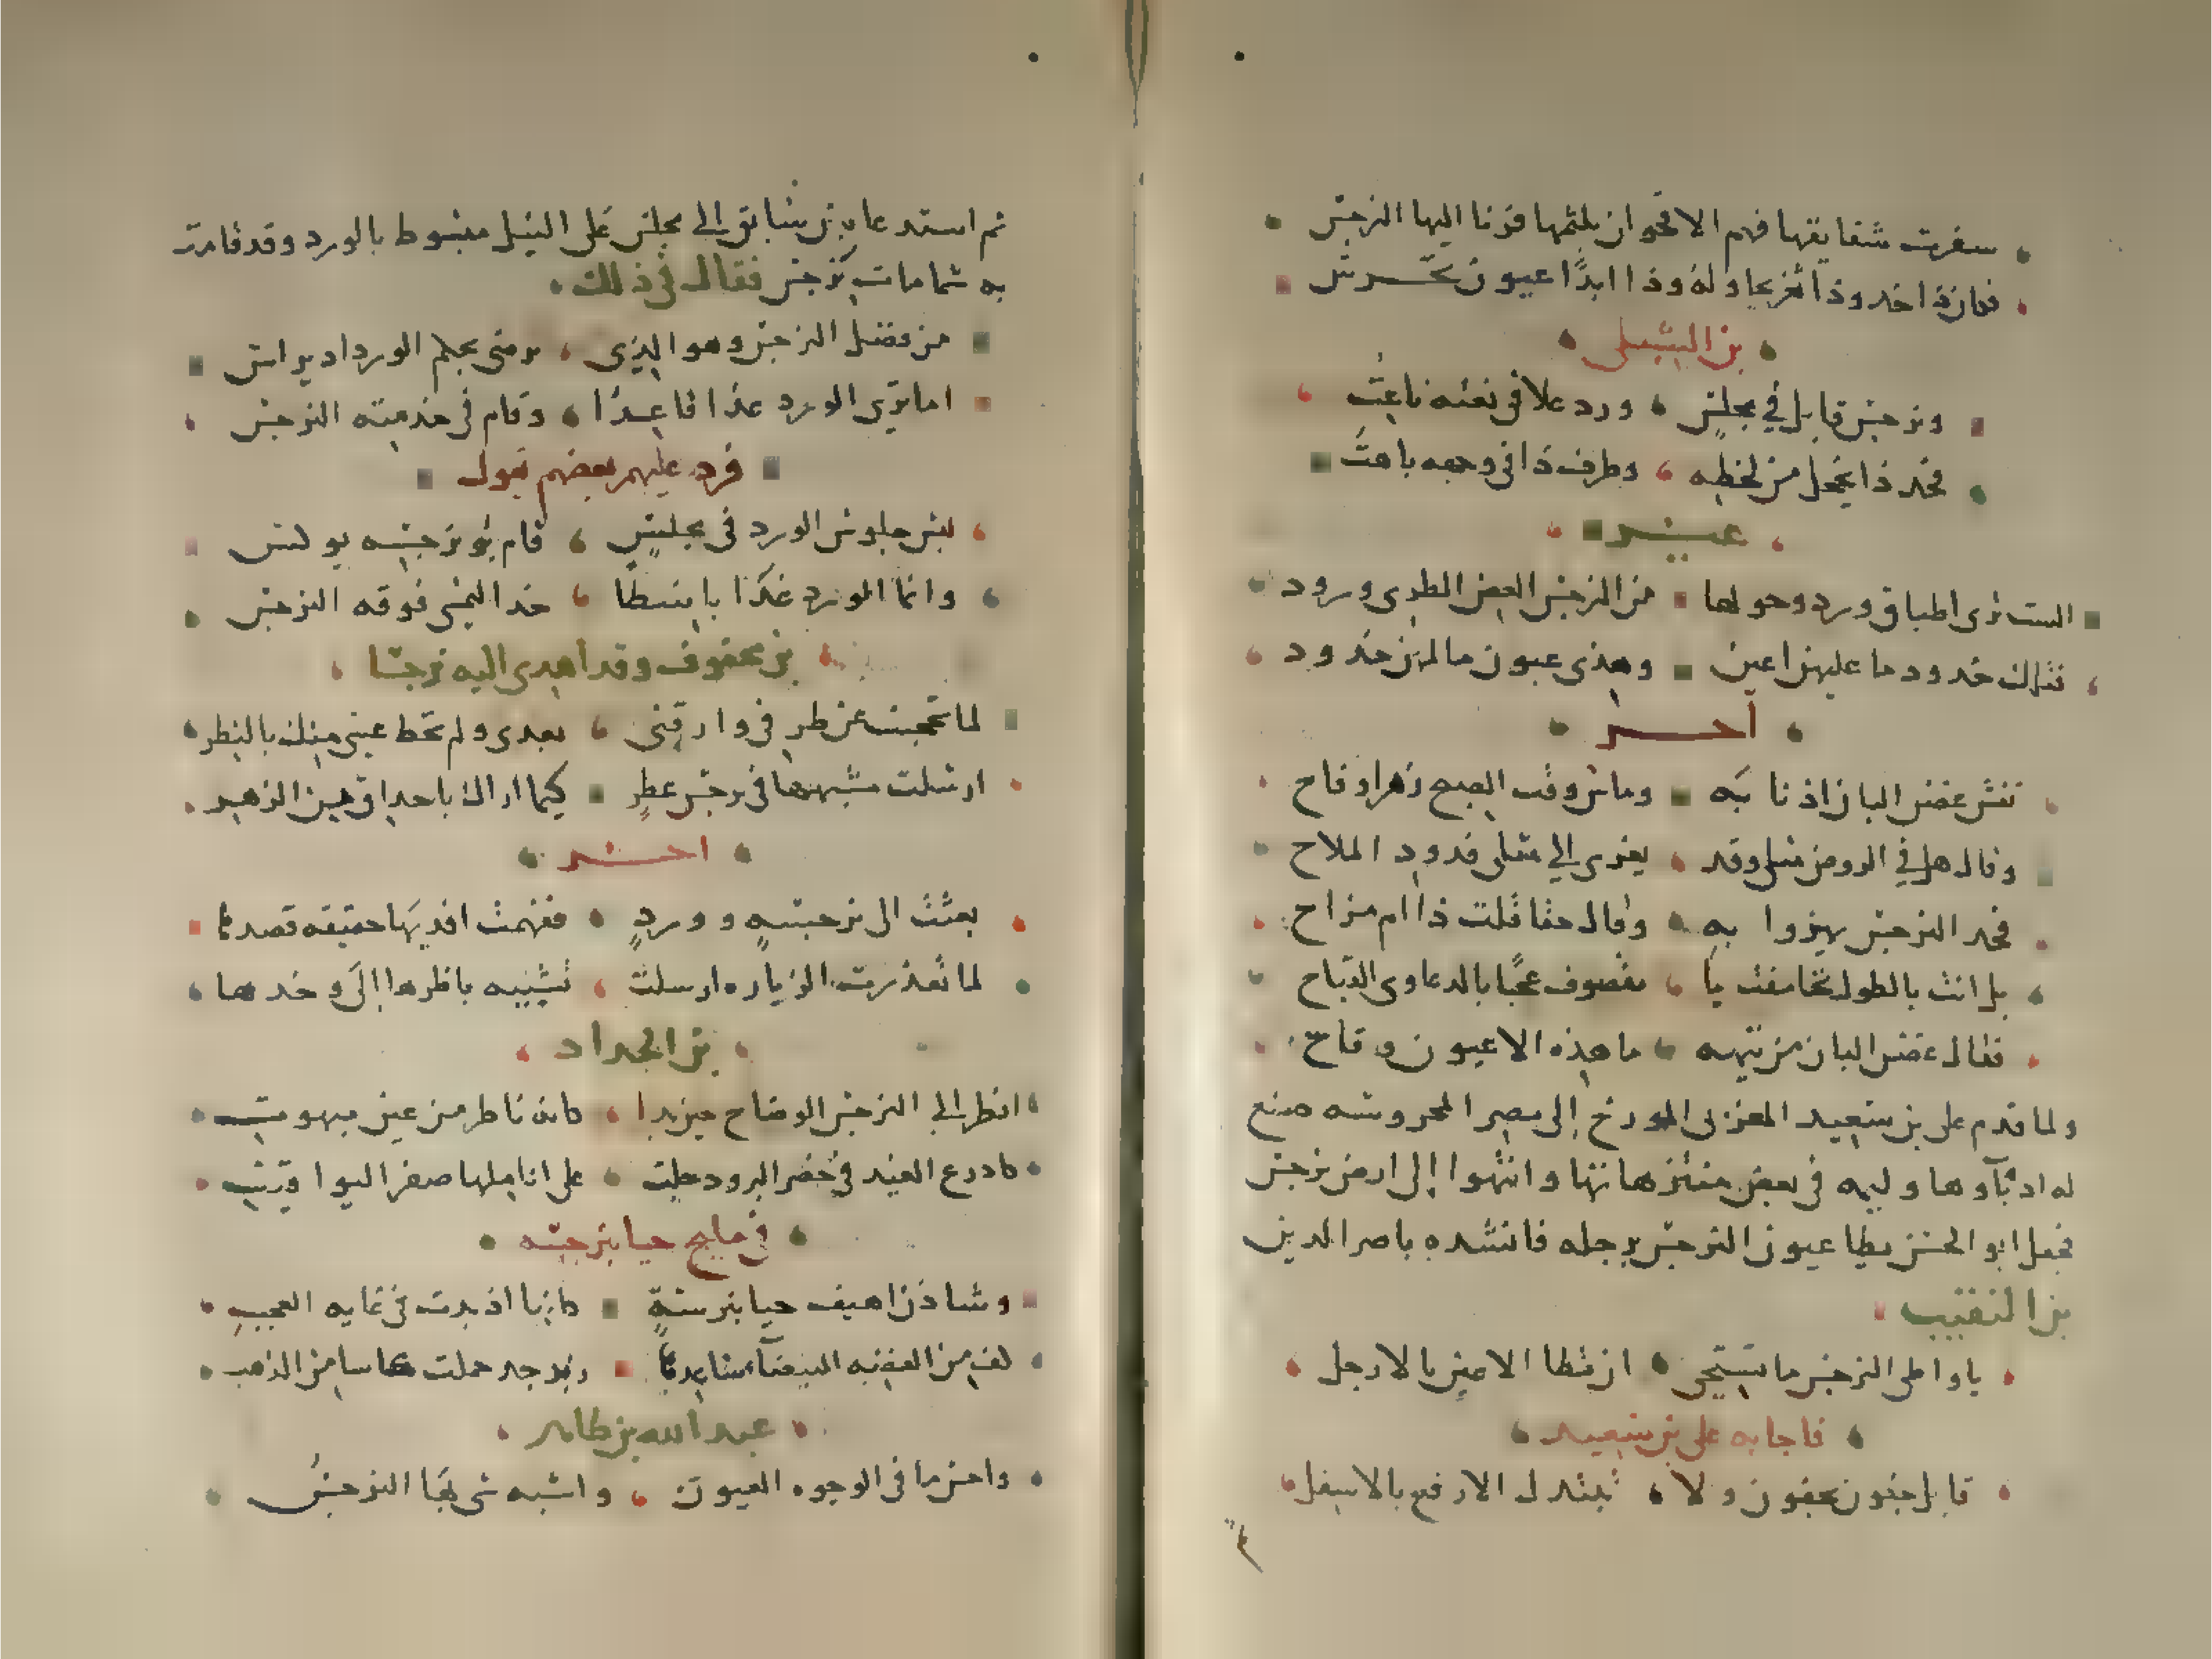 سفرت شقايقها فهم الاقحوان بلثمها فرنا اليها النرجس
فكان ذا خد وذا ثغر يحاوله وذا ابدًا عيون تحرس
بن الشبلى
ونرجس قابل في مجلس ورد علا فى نعته ناعت
فخد ذا يخجل من لحظه وطرف ذا فى وجهه باهت
غيره
الست ترى اطباق ورد وحولها من النرجس الغض الطرى ورود
فتلك خدود ما عليهن اعين وهذى عيون ما لهن خدود
آخر
غصن البان اذ نابه وماس وقت الصبح زهرا وفاح
وقال هل في الروض مثلى وقد يعزى الي مثلى قدود الملاح
فحد النرجس يهزوا به وقال حقا قلت ذا ام مزاح
بل انت بالطول تحامقت يا مقصوف عجبًا بالدعاوى القباح
فقال غصن البان من تيهه ما هذه الا عيون وقاح
ولما قدم على بن سعيد المغربى المورخ إلى مصر المحروسه صنع
له ادبآوها وليمه فى بعض منتزهاتها وانتهوا إلى ارض نرجس
فجعل ابو الحسن يطا عيون النرجس برجله فانشده ناصر الدين
بن النقيب
يا واطى النرجس ما تستحى ان تطا الاعين بالارجل
فاجابه على بن سعيد
قابل جفون بجفون ولا تبتدل الارفع بالاسفل
ثم استدعاه بن سابق إلى مجلس على النيل مبسوط بالورد وقد قامت
به شمامات نرجس فقال فى ذلك
من فضل النرجس وهو الذى يرضى بحكم الورد اذ يراس
اما ترى الورد غدا قاعدًا وقام فى خدمته النرجس
فرد عليهم بعضهم بقوله
ليس جلوس الورد فى مجلس قام به نرجسه يوكس
وانما الورد غدا باسطا خدا ليمشى فوقه النرجس
بن مخفوف وقد اهدى اليه نرجسًا
لما تحجبت عن طرفى وارقنى بعدى ولم تحظ عينى منك بالنظر
ارسلت مشبهها فى نرجس عطر كيما اراك باحداق من الزهر
اخر
بعثت الى نرجسةٍ ووردٍ ففهمت افديها حقيقه قصدها
لما تعذرت الزياره ارسلت تشبيه ناظرها إلى وخدها
بن الحداد
انظر الي النرجس الوضاح حين بدا كانه ناظر من عين مبهوت
كاذرع الغيد في خضر البرود حلت على اناملها صفر اليواقيت
فى مليح حيا بنرجسه
وشادن اهيف حيا بنرجسةٍ كانها اذ بدت فى غايه العجب
كف من الفضه البيضآء ساعدها زبرجد حملت كاسا من الذهب
عبد الله بن طاهر
واحسن ما فى الوجوه العيون واشبه شى بها النرجس